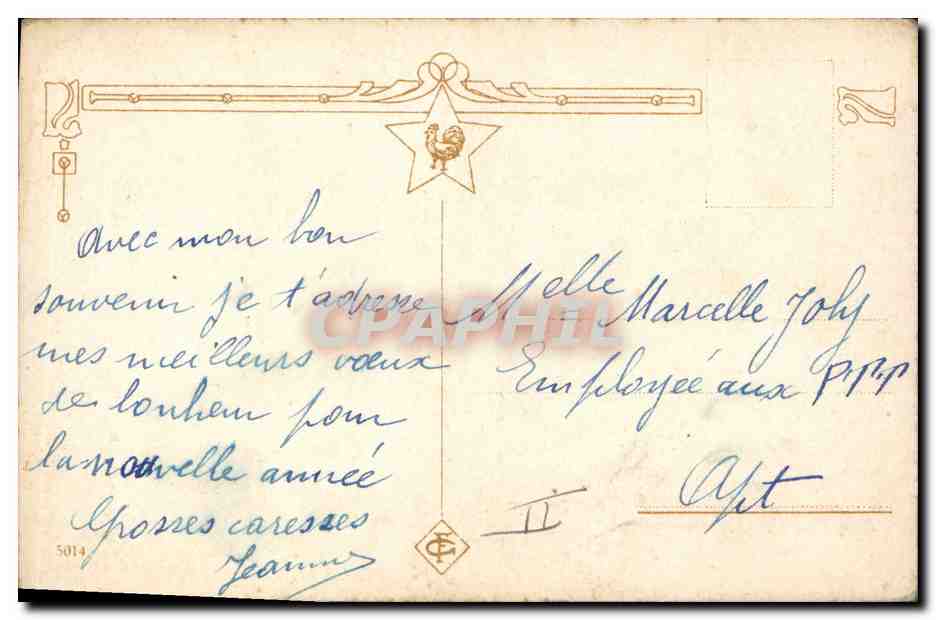 Avec mon bon
souvenir je t'adresse
mes meilleurs vœux
de bonheur pour
la nouvelle année
Grosses caresses
Jeanne
5014
Melle Marcelle Joly
Employée aux P.P.P
Apt
II
CPAPHIL